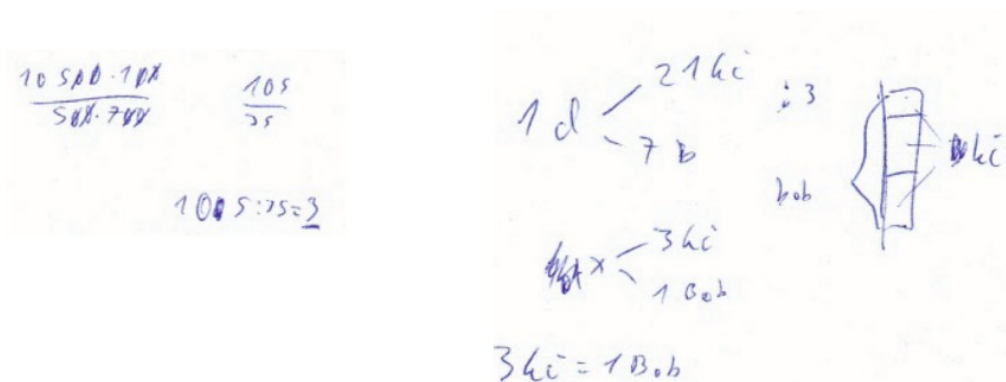 10 500 · 10x
50x · 700
105
35
105 : 35 = 3
1 d
21 ki
7 b
: 3
bob
ki
x
3 ki
1 Bob
3 ki = 1 Bob